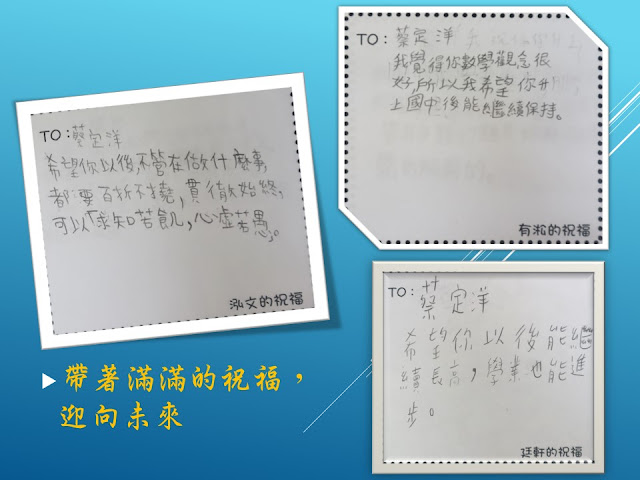 TO：蔡定洋
希望你以後,不管在做什麼事
都要百折不撓,貫徹始終,
可以「求知若飢,心虛若愚」。
泓文的祝福
TO：蔡定洋
我覺得你數學觀念很
好,所以我希望你升
上國中後能繼續保持。
有淞的祝福
TO：蔡定洋
希望你以後能繼
續長高,學業也能進
步。
廷軒的祝福
帶著滿滿的祝福，
迎向未來